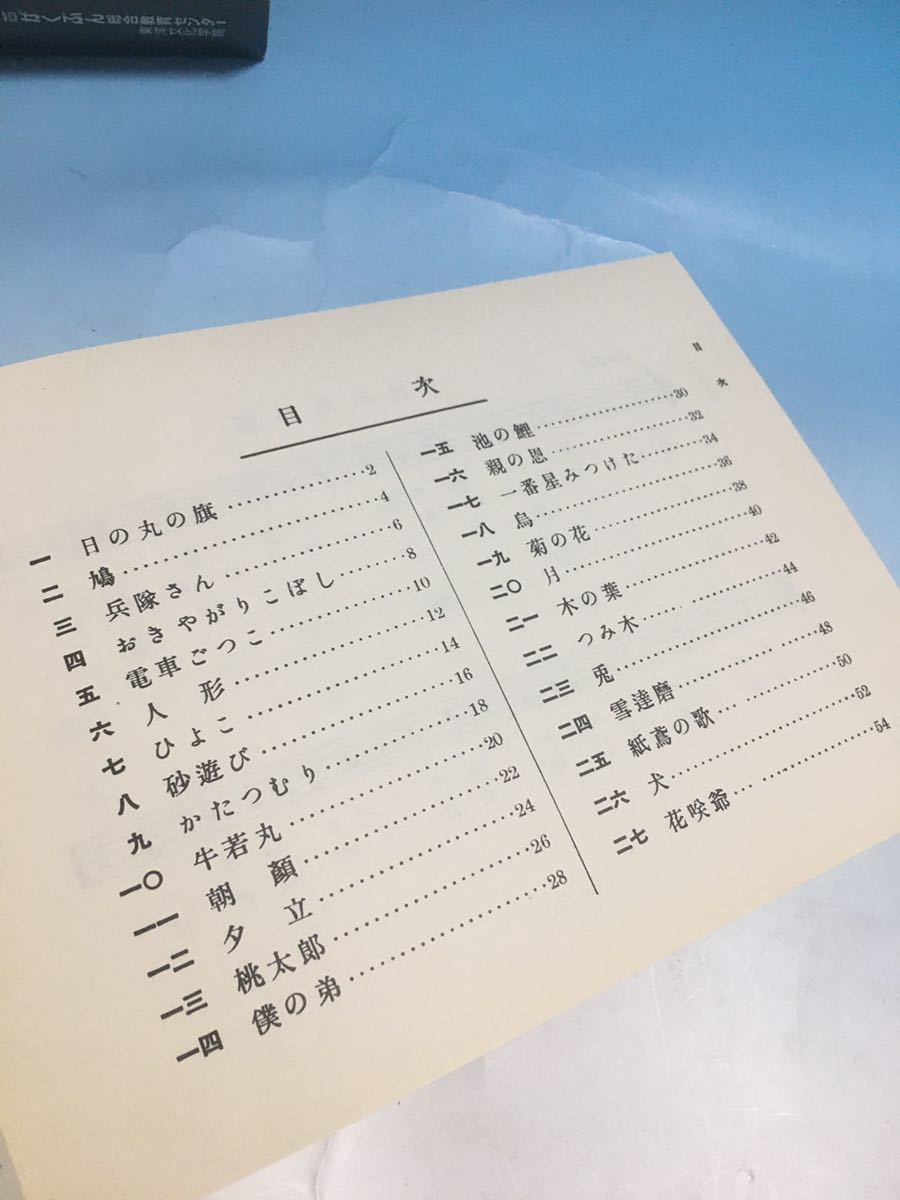 るがくぶん総合教育センター
東洋文化学院
目次
一 日の丸の旗 2
二 鳩 4
三 兵隊さん 6
四 おきやがりこぼし 8
五 電車ごつこ 10
六 人形 12
七 ひよこ 14
八 砂遊び 16
九 かたつむり 18
一〇 牛若丸 20
一一 朝顏 22
一二 夕立 24
一三 桃太郎 26
一四 僕の弟 28
一五 池の鯉 30
一六 親の恩 32
一七 一番星みつけた 34
一八 烏 36
一九 菊の花 38
二〇 月 40
二一 木の葉 42
二二 つみ木 44
二三 兎 46
二四 雪達磨 48
二五 紙鳶の歌 50
二六 犬 52
二七 花咲爺 54
目次